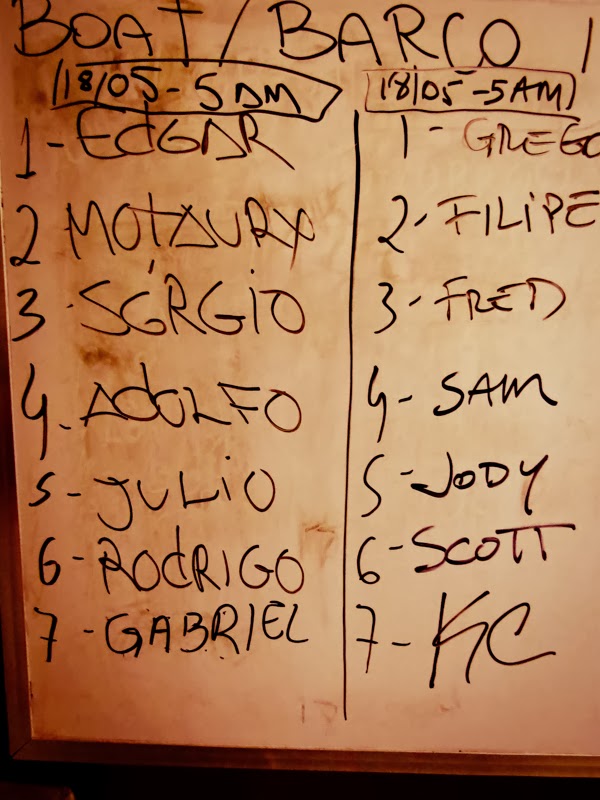 BOAT / BARCO 1
18/05 - 5 AM
1 - EDGAR
2 MOTAURY
3 - SÉRGIO
4. ADOLFO
5 - JULIO
6 - RODRIGO
7 - GABRIEL
18/05 - 5 AM
1 - GREGO
2 - FILIPE
3 - FRED
4 - SAM
5 - JODY
6 - SCOTT
7 - KC